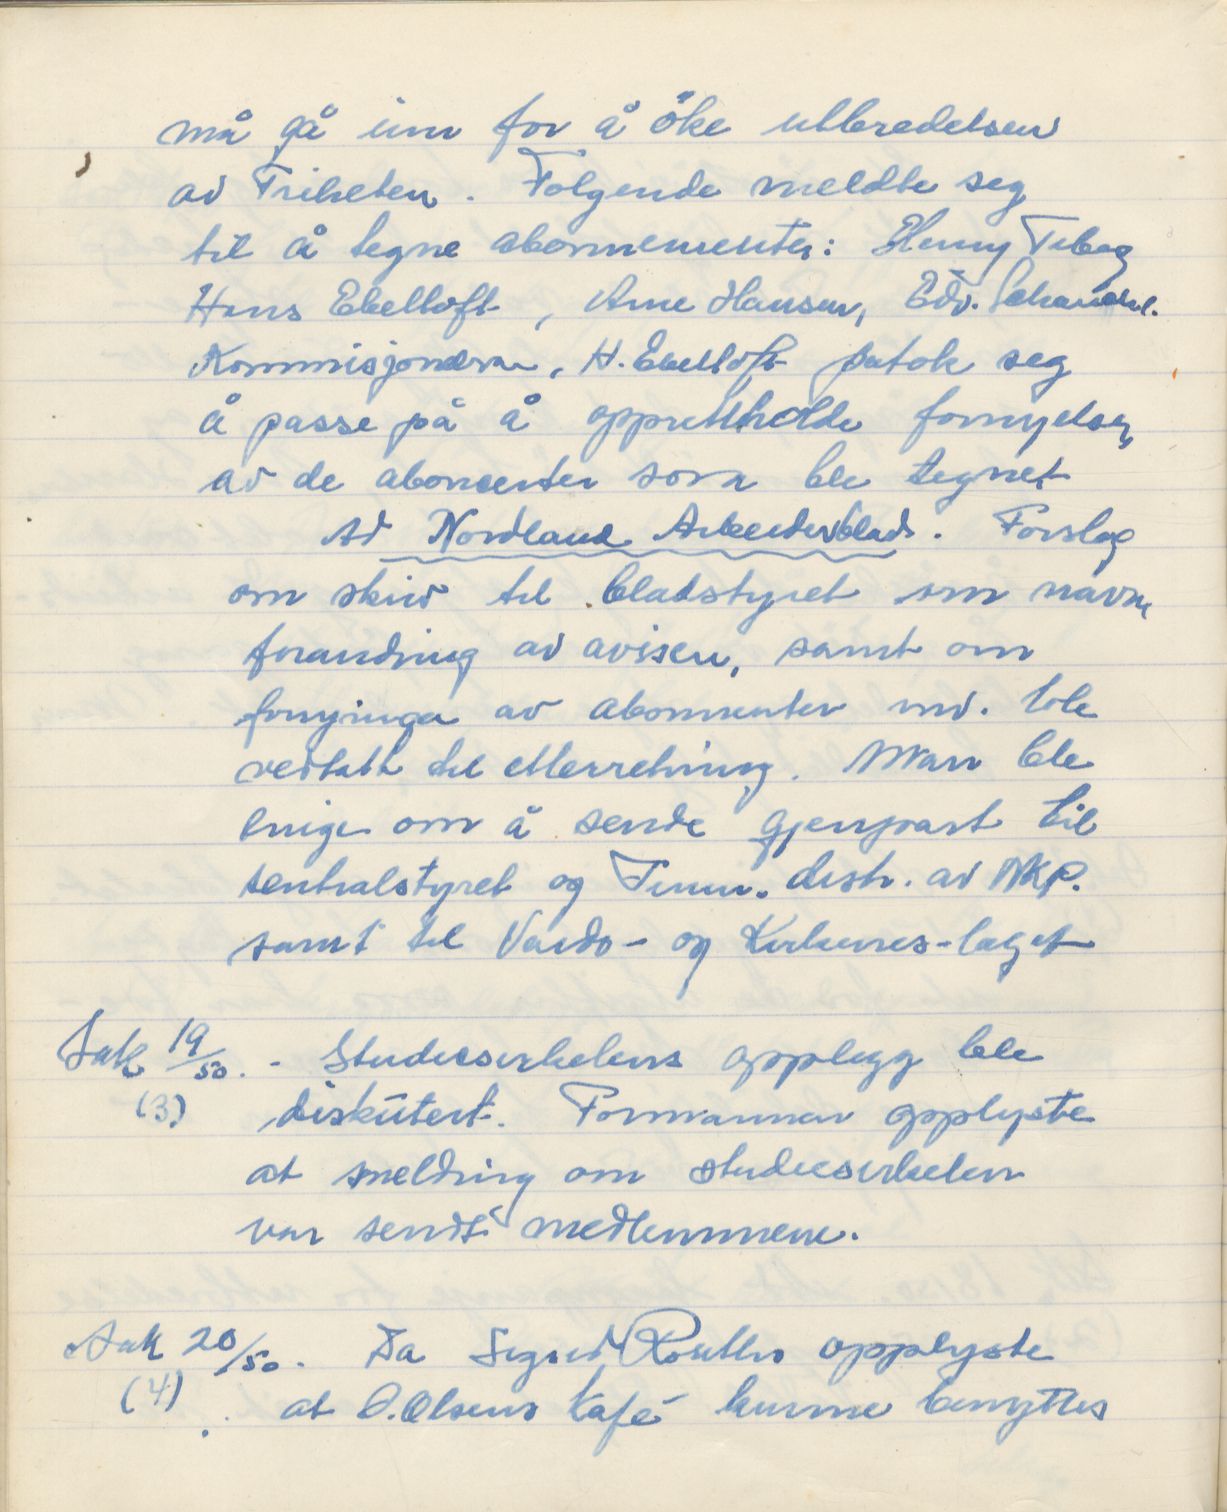 må gå inn for å öke utbredelsen
av Friheten. Følgende meldte seg
til å tegne abonnementer: Henny
Hans Ebeltoft, Arne Hansen, Edv.
Kommisjonæren, H. Ebeltoft påtok seg
å passe på å opprettholde fornyelsen
av de abonenter som ble tegnet
Ad Nordland Arbeiderblad. Forslag
om skriv til bladstyret om navn
forandring av avisen, samt om
fornyinga av abonnenter m.v. ble
vedtatt til etterretning. Man ble
enige om å sende gjenpart til
sentralstyret og Finnm. distr. av NKP.
samt til Vardö- og Kirkenes-laget
Sak 19/50. - Studiesirkelens opplegg ble
(3) diskutert. Formannen opplyste
at melding om studiesirkelen
var sendt medlemmene.
Sak 20/50. Da Sigrid opplyste
(4) at O. Olsens Kafé kunne benyttes